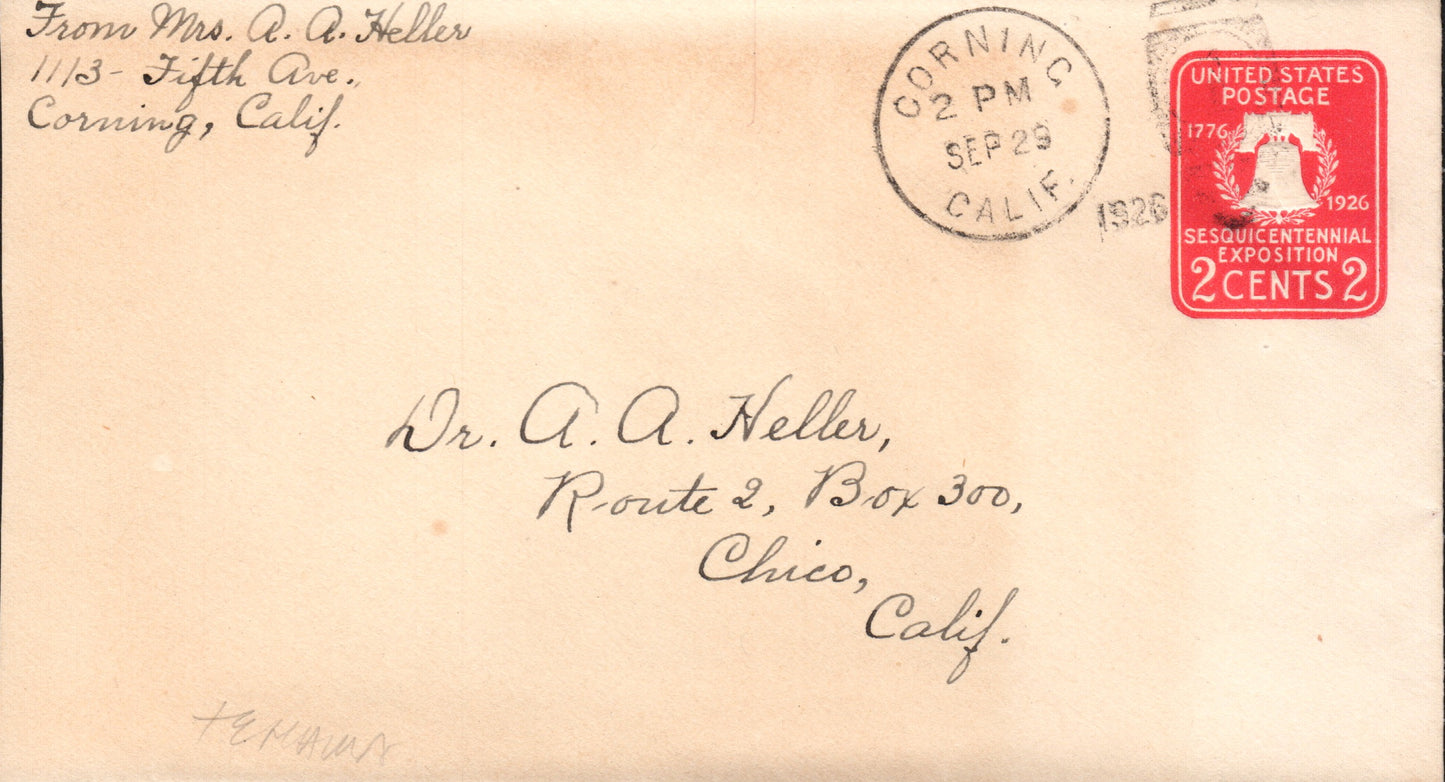 From Mrs. A. A. Heller
1113 - Fifth Ave.,
Corning, Calif.
CORNING
2 PM
SEP 29
CALIF.
1926
UNITED STATES
POSTAGE
1776
1926
SESQUICENTENNIAL
EXPOSITION
2 CENTS 2
Dr. A. A. Heller,
Route 2, Box 300,
Chico,
Calif.
TEHAMA